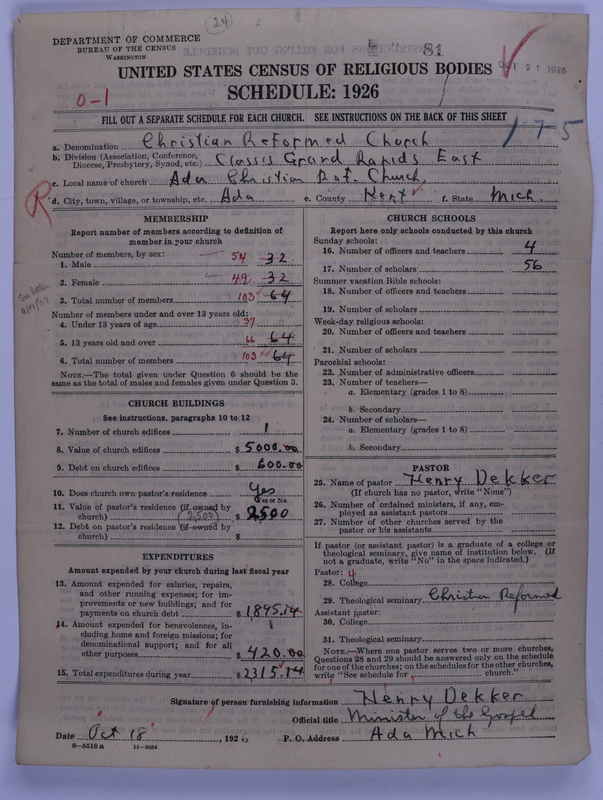 24
DEPARTMENT OF COMMERCE
BUREAU OF THE CENSUS
WASHINGTON
81
OCT 21 1926
UNITED STATES CENSUS OF RELIGIOUS BODIES
SCHEDULE: 1926
0-1
FILL OUT A SEPARATE SCHEDULE FOR EACH CHURCH. SEE INSTRUCTIONS ON THE BACK OF THIS SHEET
17-5
a. Denomination Christian Reformed Church
b. Division (Association, Conference, Diocese, Presbytery, Synod, etc.) Classis Grand Rapids East
c. Local name of church Ada Christian Ref. Church
R
d. City, town, village, or township, etc. Ada e. County Kent f. State Mich.
MEMBERSHIP
Report number of members according to definition of
member in your church
Number of members, by sex:
1. Male 54 32
2. Female 49 32
3. Total number of members 103 64
Number of members under and over 13 years old:
4. Under 13 years of age 37
5. 13 years old and over 66 64
6. Total number of members 103 64
NOTE.—The total given under Question 6 should be
same as the total of males and females given under Question 3.
CHURCH BUILDINGS
See instructions, paragraphs 10 to 12
7. Number of church edifices 1
8. Value of church edifices $ 5000.00
9. Debt on church edifices $ 600.00
10. Does church own pastor's residence Yes
Yes or No
11. Value of pastor's residence (if owned by
church) (2,500) $ 2500
12. Debt on pastor's residence (if owned by
church) $
EXPENDITURES
Amount expended by your church during last fiscal year
13. Amount expended for salaries, repairs,
and other running expenses; for im-
provements or new buildings; and for
payments on church debt $ 1895.14
14. Amount expended for benevolences, in-
cluding home and foreign missions; for
denominational support; and for all
other purposes $ 420.00
15. Total expenditures during year $ 2315.14
CHURCH SCHOOLS
Report here only schools conducted by this church
Sunday schools:
16. Number of officers and teachers 4
17. Number of scholars 56
Summer vacation Bible schools:
18. Number of officers and teachers
19. Number of scholars
Week-day religious schools:
20. Number of officers and teachers
21. Number of scholars
Parochial schools:
22. Number of administrative officers
23. Number of teachers—
a. Elementary (grades 1 to 8)
b. Secondary
24. Number of scholars—
a. Elementary (grades 1 to 8)
b. Secondary
PASTOR
25. Name of pastor Henry Dekker
(If church has no pastor, write "None")
26. Number of ordained ministers, if any, em-
ployed as assistant pastors
27. Number of other churches served by the
pastor or his assistants
If pastor (or assistant pastor) is a graduate of a college or
theological seminary, give name of institution below. (If
not a graduate, write "No" in the space indicated.)
Pastor: 4
28. College
29. Theological seminary Christian Reformed
Assistant pastor:
30. College
31. Theological seminary
NOTE.—Where one pastor serves two or more churches,
Questions 28 and 29 should be answered only on the schedule
for one of the churches; on the schedules for the other churches,
write "See schedule for church."
Signature of person furnishing information Henry Dekker
Official title Minister of the Gospel
Date Oct 18, 1926 P. O. Address Ada Mich
8-5518a 11-9684